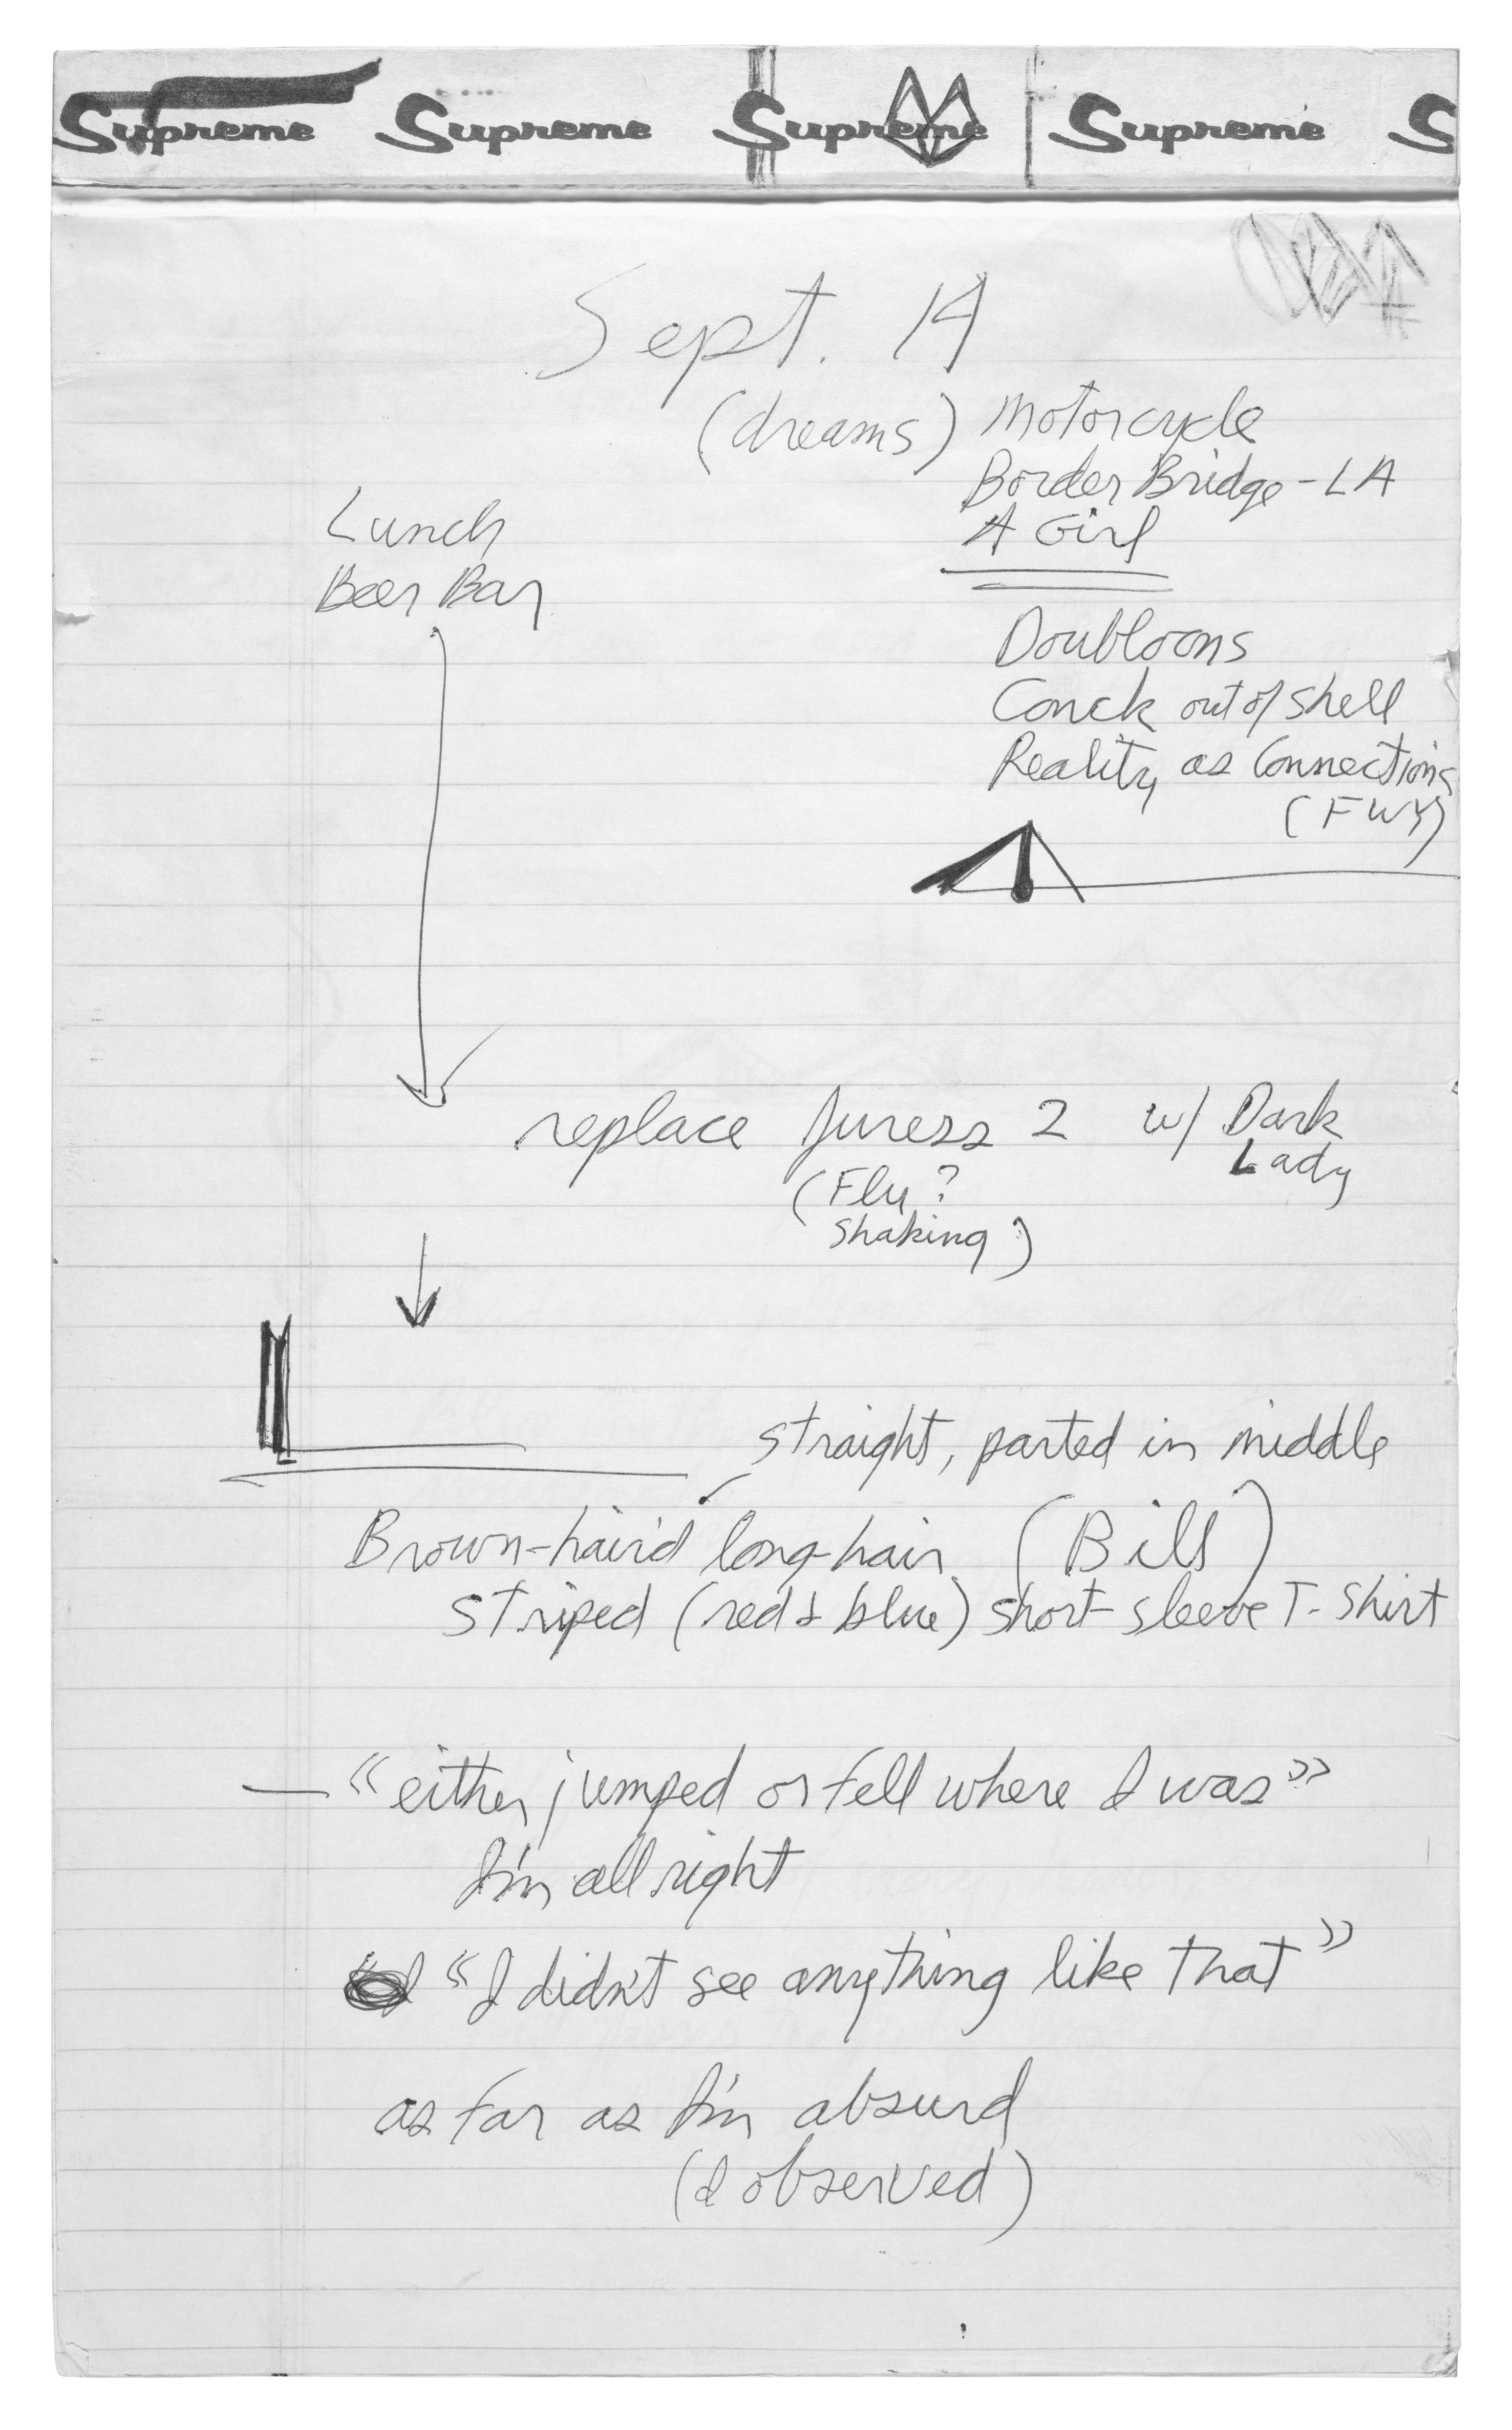 Supreme Supreme Supreme Supreme S
Sept. 14
(dreams) Motorcycle
Border Bridge - LA
A Girl
Lunch
Beer Bar
Doubloons
Conck out of shell
Reality as Connections
(FWY)
replace Juress 2 w/ Dark
Lady
(Flu?
shaking)
straight, parted in middle
Brown-hair'd long-hair (Bill)
striped (red & blue) short-sleeve T-Shirt
— "either jumped or fell where I was"
I'm all right
"I didn't see anything like that"
as far as I'm absurd
(I observed)